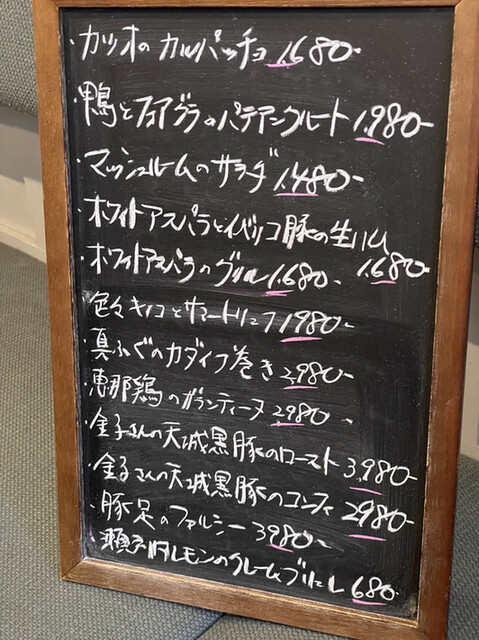 ・カツオのカルパッチョ 1.680-
・鴨とフォアグラのパテアンクルート 1.980-
・マッシュルームのサラダ 1.480-
・ホワイトアスパラとイベリコ豚の生ハム 1.680-
・ホワイトアスパラのグリル 1.680-
キノコとサマートリュフ 1980-
・真ふぐのカダイフ巻き 2,980-
・恵那鶏のガランティーヌ 2980-
・金子さんの天城黒豚のロースト 3,980-
・金子さんの天城黒豚のコンフィ 2980-
・豚足のファルシー 3980-
・瀬戸内レモンのクレームブリュレ 680-